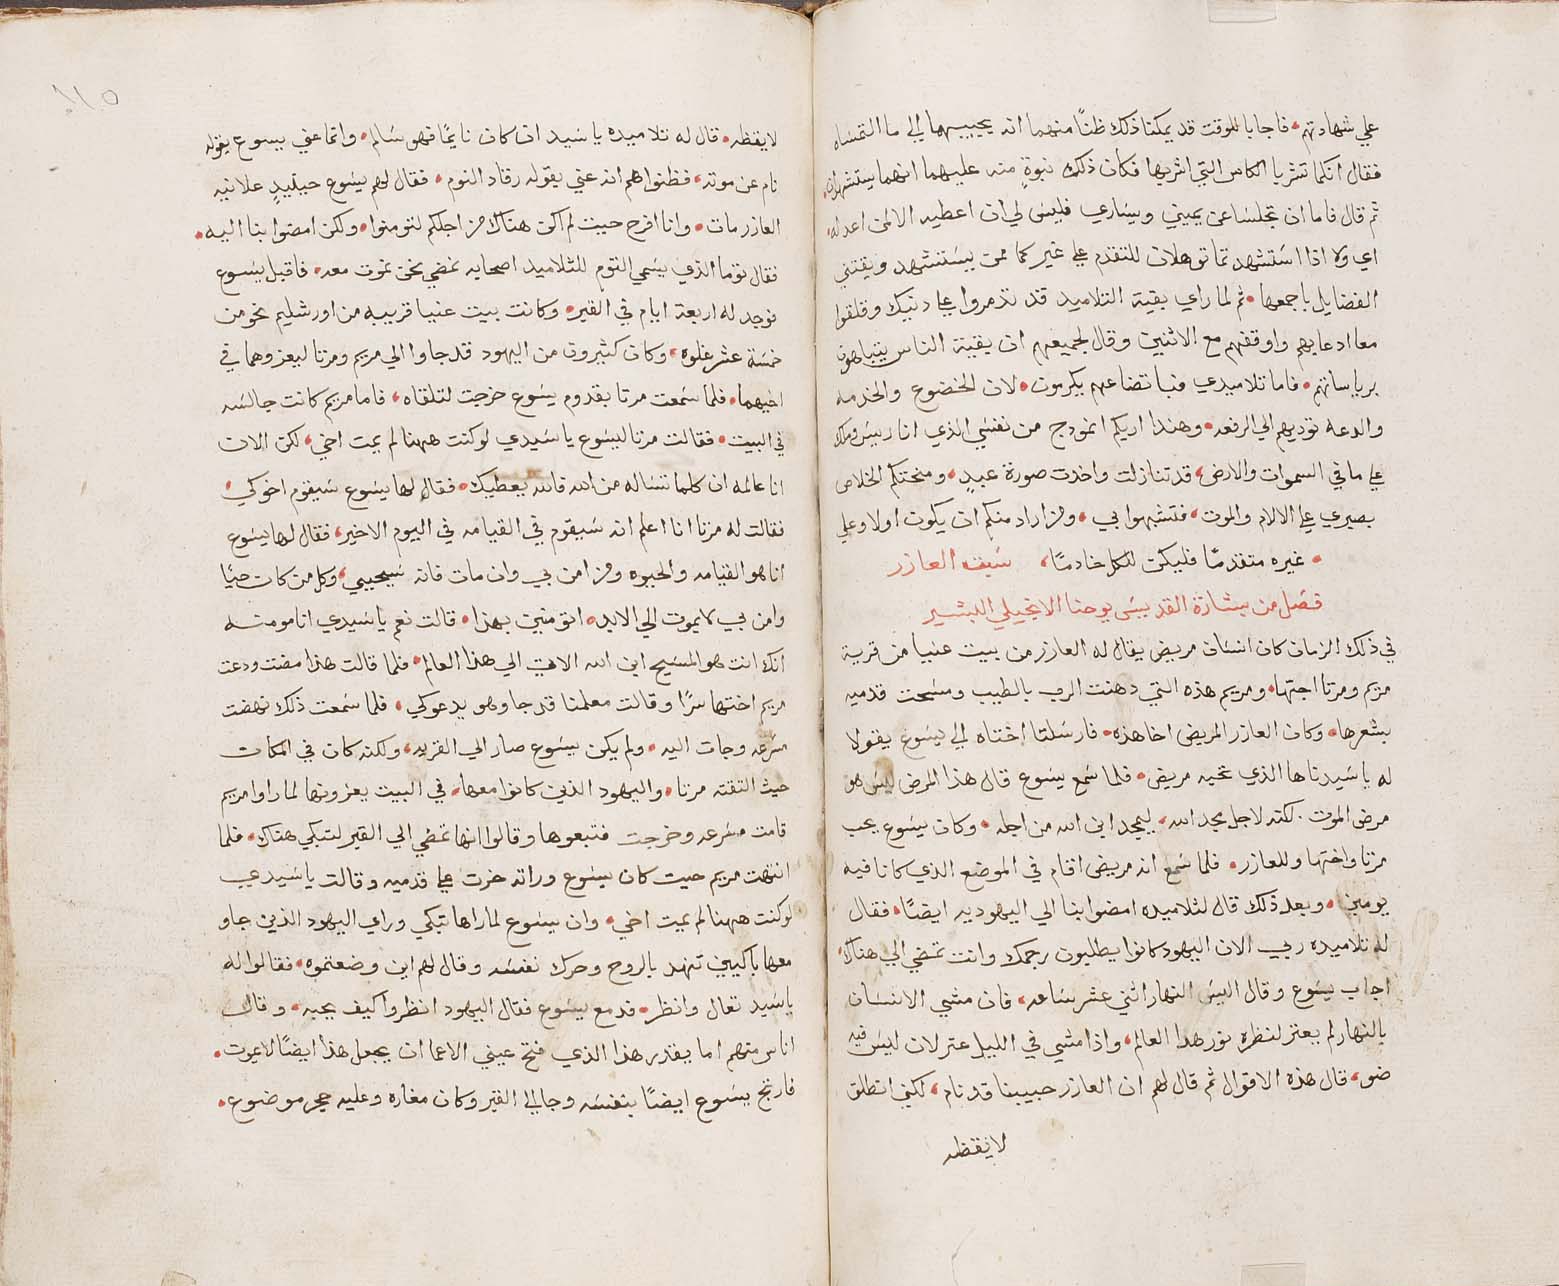 علي شهادتهم • فاجابا للوقت قد يمكننا ذلك ظنًا منهما انه يجيبهما الي ما التمساه
فقال انكما تشربا الكاس التي اشربها فكان ذلك نبوةٍ منه عليهما انهما يستشهدان •
ثم قال فاما ان تجلسا عن يميني ويساري فليس لي ان اعطيه الا لمن اعد له •
اي ولا اذا استشهدتما توهلان للتقدم علي غيركما ممن يستشهد ويقتني
الفضايل باجمعها • ثم لما راي بقية التلاميد قد تذمروا علي دنيك وقلقوا
معا ادعا بهم واوقفهم مع الاثنين وقال لجميعهم ان بقية الناس يتباهون
برياساتهم • فاما تلاميدي فباتضاعهم يكرمون • لان الخضوع والخدمه
والدعه توديهم الي الرفعه • وهندا اريكم انمودج من نفسي الذي انا ريس وملك
علي ما في السموات والارض • قد تنازلت واخدت صورة عبدٍ • ومنحتكم الخلاص
بصبري علي الالام والموت • فتشبهوا بي • ومن اراد منكم ان يكون اولا وعلي
• غيره متقدمًا فليكن للكل خادمًا • سبت العازر
فصل من بشارة القديس يوحنا الانجيلي البشير
في ذلك الزمان كان انسان مريض يقال له العازر من بيت عنيا من قرية
مريم ومرتا اختها • ومريم هذه التي دهنت الرب بالطيب ومسحت قدميه
بشعرها • وكان العازر المريض اخا هذه • فارسلتا اختاه الي يسوع يقولا
له يا سيدنا ها الذي تحبه مريض • فلما سمع يسوع قال هذا المرض ليس هو
مرض الموت . لكنه لاجل مجد الله • ليمجد ابن الله من اجله • وكان يسوع يحب
مرتا واختها وللعازر • فلما سمع انه مريض اقام في الموضع الذي كانا فيه
يومين • وبعد ذلك قال لتلاميده امضوا بنا الي اليهوديه ايضًا • فقال
له تلاميده ربي الان اليهود كانوا يطلبون رجمك وانت تمضي الي هناك •
اجاب يسوع وقال اليس النهار اثني عشر ساعه • فان مشي الانسان
بالنهار لم يعتر لنظره نور هدا العالم • واذا مشي في الليل عتر لان ليس فيه
ضو • قال هذه الاقوال ثم قال لهم ان العازر حبيبنا قد نام • لكني انطلق
لايقظه
١١٥
لايقظه • قال له تلاميده يا سيد ان كان نايمًا فهو سالم • وانما عني يسوع بقوله
نام عن موته • فظنوا هم انه عني بقوله رقاد النوم • فقال لهم يسوع حينيدٍ علانيه
العازر مات • وانا افرح حيت لم اكن هناك من اجلكم لتومنوا • ولكن امضوا بنا اليه •
فقال توما الذي يسمي التوم للتلاميد اصحابه نمضي نحن نموت معه • فاقبل يسوع
فوجد له اربعة ايام في القبر • وكانت بيت عنيا قريبه من اورشليم نحو من
خمسة عشر غلوه • وكان كثيرون من اليهود قد جاوا الي مريم ومرتا ليعزوهما في
اخيهما • فلما سمعت مرتا بقدوم يسوع خرجت لتلقاه • فاما مريم كانت جالسه
في البيت • فقالت مرتا ليسوع يا سيدي لو كنت ههنا لم يمت اخي • لكن الان
انا عالمه ان كلما تساله من الله فالله يعطيك • فقال لها يسوع سيقوم اخوكي •
فقالت له مرتا انا اعلم انه سيقوم في القيامه في اليوم الاخير • فقال لها يسوع
انا هو القيامه والحيوه ومن امن بي وان مات فانه سيحيي • وكل من كان حيًا
وامن بي لا يموت الي الابد • اتومنين بهذا • قالت نعم يا سيدي انا مومنه
انك انت هو المسيح ابن الله الاتي الي هذا العالم • فلما قالت هذا مضت ودعت
مريم اختها سرًا وقالت معلمنا قد جا وهو يدعوكي • فلما سمعت ذلك نهضت
مسرعه وجات اليه • ولم يكن يسوع صار الي القريه • ولكنه كان في المكان
حيث التقته مرتا • واليهود الذين كانوا معها • في البيت يعزونها لما راوا مريم
قامت مسرعه وخرجت فتبعوها وقالوا انها تمضي الي القبر لتبكي هناك • فلما
انتهت مريم حيت كان يسوع وراته خرت علي قدميه وقالت يا سيدي
لو كنت ههنا لم يمت اخي • وان يسوع لما راها تبكي وراي اليهود الذين جاو
معها باكيين تنهد بالروح وحرك نفسه وقال لهم اين وضعتموه • فقالوا له
يا سيد تعال وانظر • فدمع يسوع فقال اليهود انظروا كيف يحبه • وقال
اناس منهم اما يقدر هذا الذي فتح عيني الاعما ان يجعل هذا ايضًا لا يموت •
فارتج يسوع ايضًا بنفسه وجا الي القبر وكان مغاره وعليه حجر موضوع •